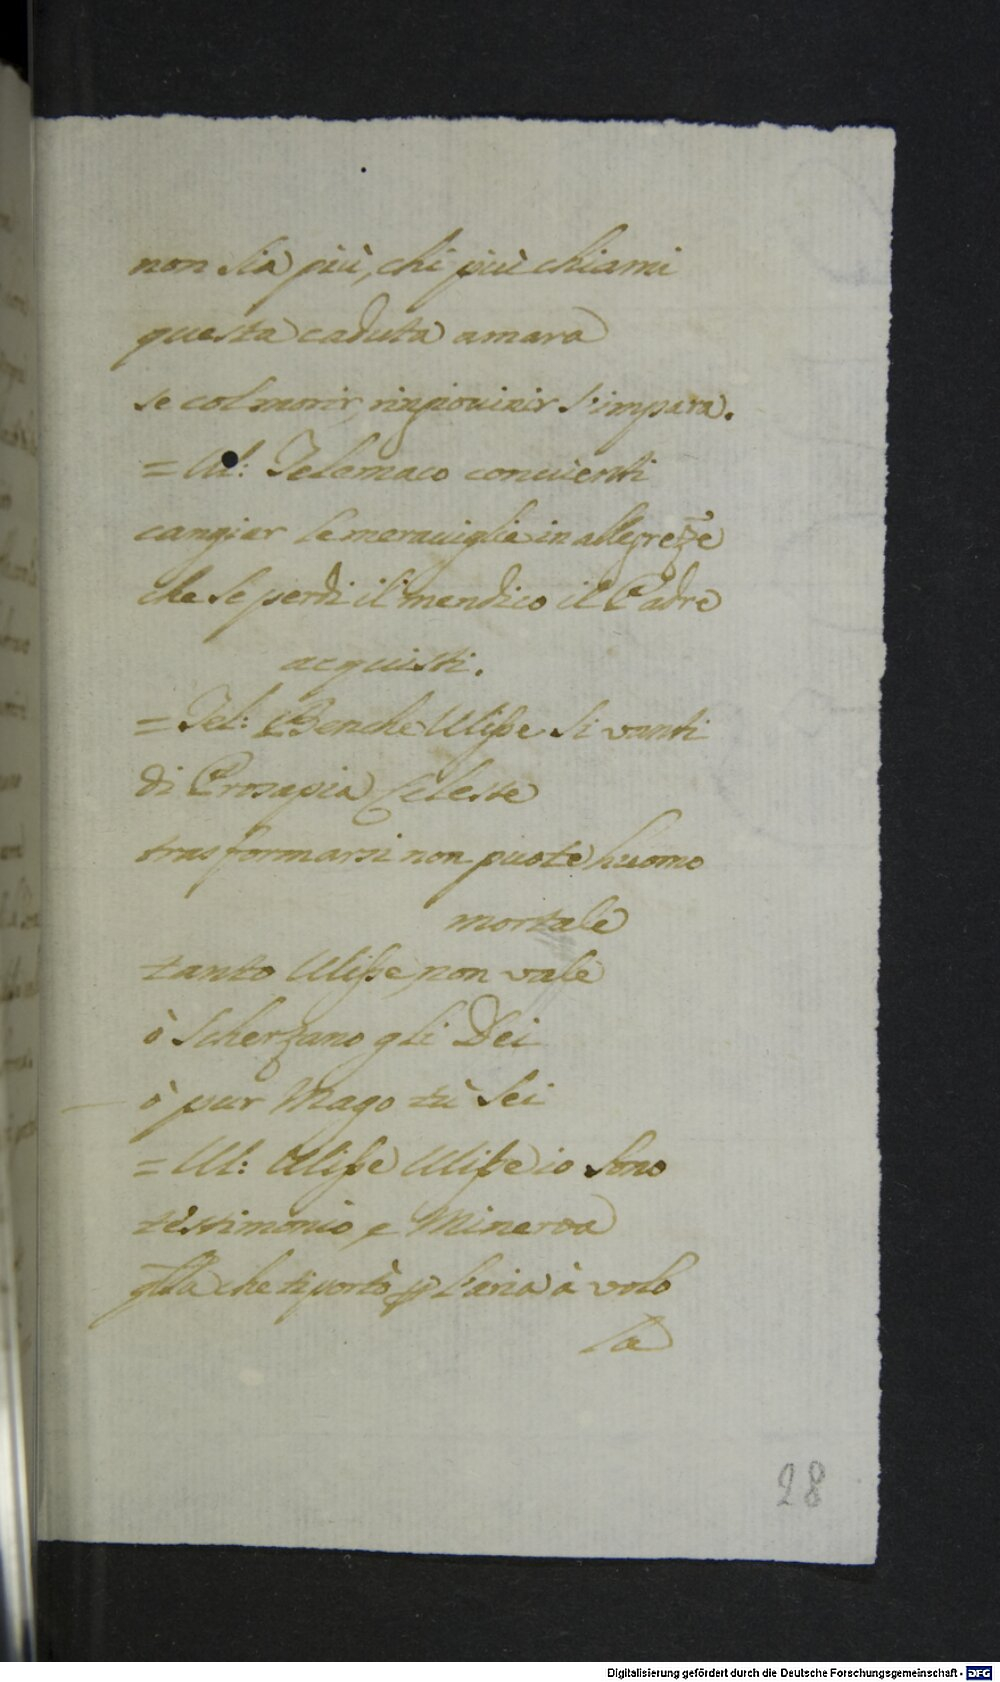 non sia più, chi più chiami
questa caduta amara
se col morir, ringiovinir s'impara.
= Ul: Telemaco convienti
cangiar le meraviglie in allegrezze
che se perdi il mendico il Padre
acquisti.
= Tel: Benche Ulisse si vanti
di Prosapia Celeste
trasformarsi non puote huomo
mortale
tanto Ulisse non vale
ò scherzano gli Dei
ò pur Mago tù sei
= Ul: Ulisse Ulisse io sono
testimonio, e Minerva
qlla che ti portò p l'aria à volo
la
28
Digitalisierung gefördert durch die Deutsche Forschungsgemeinschaft - DFG